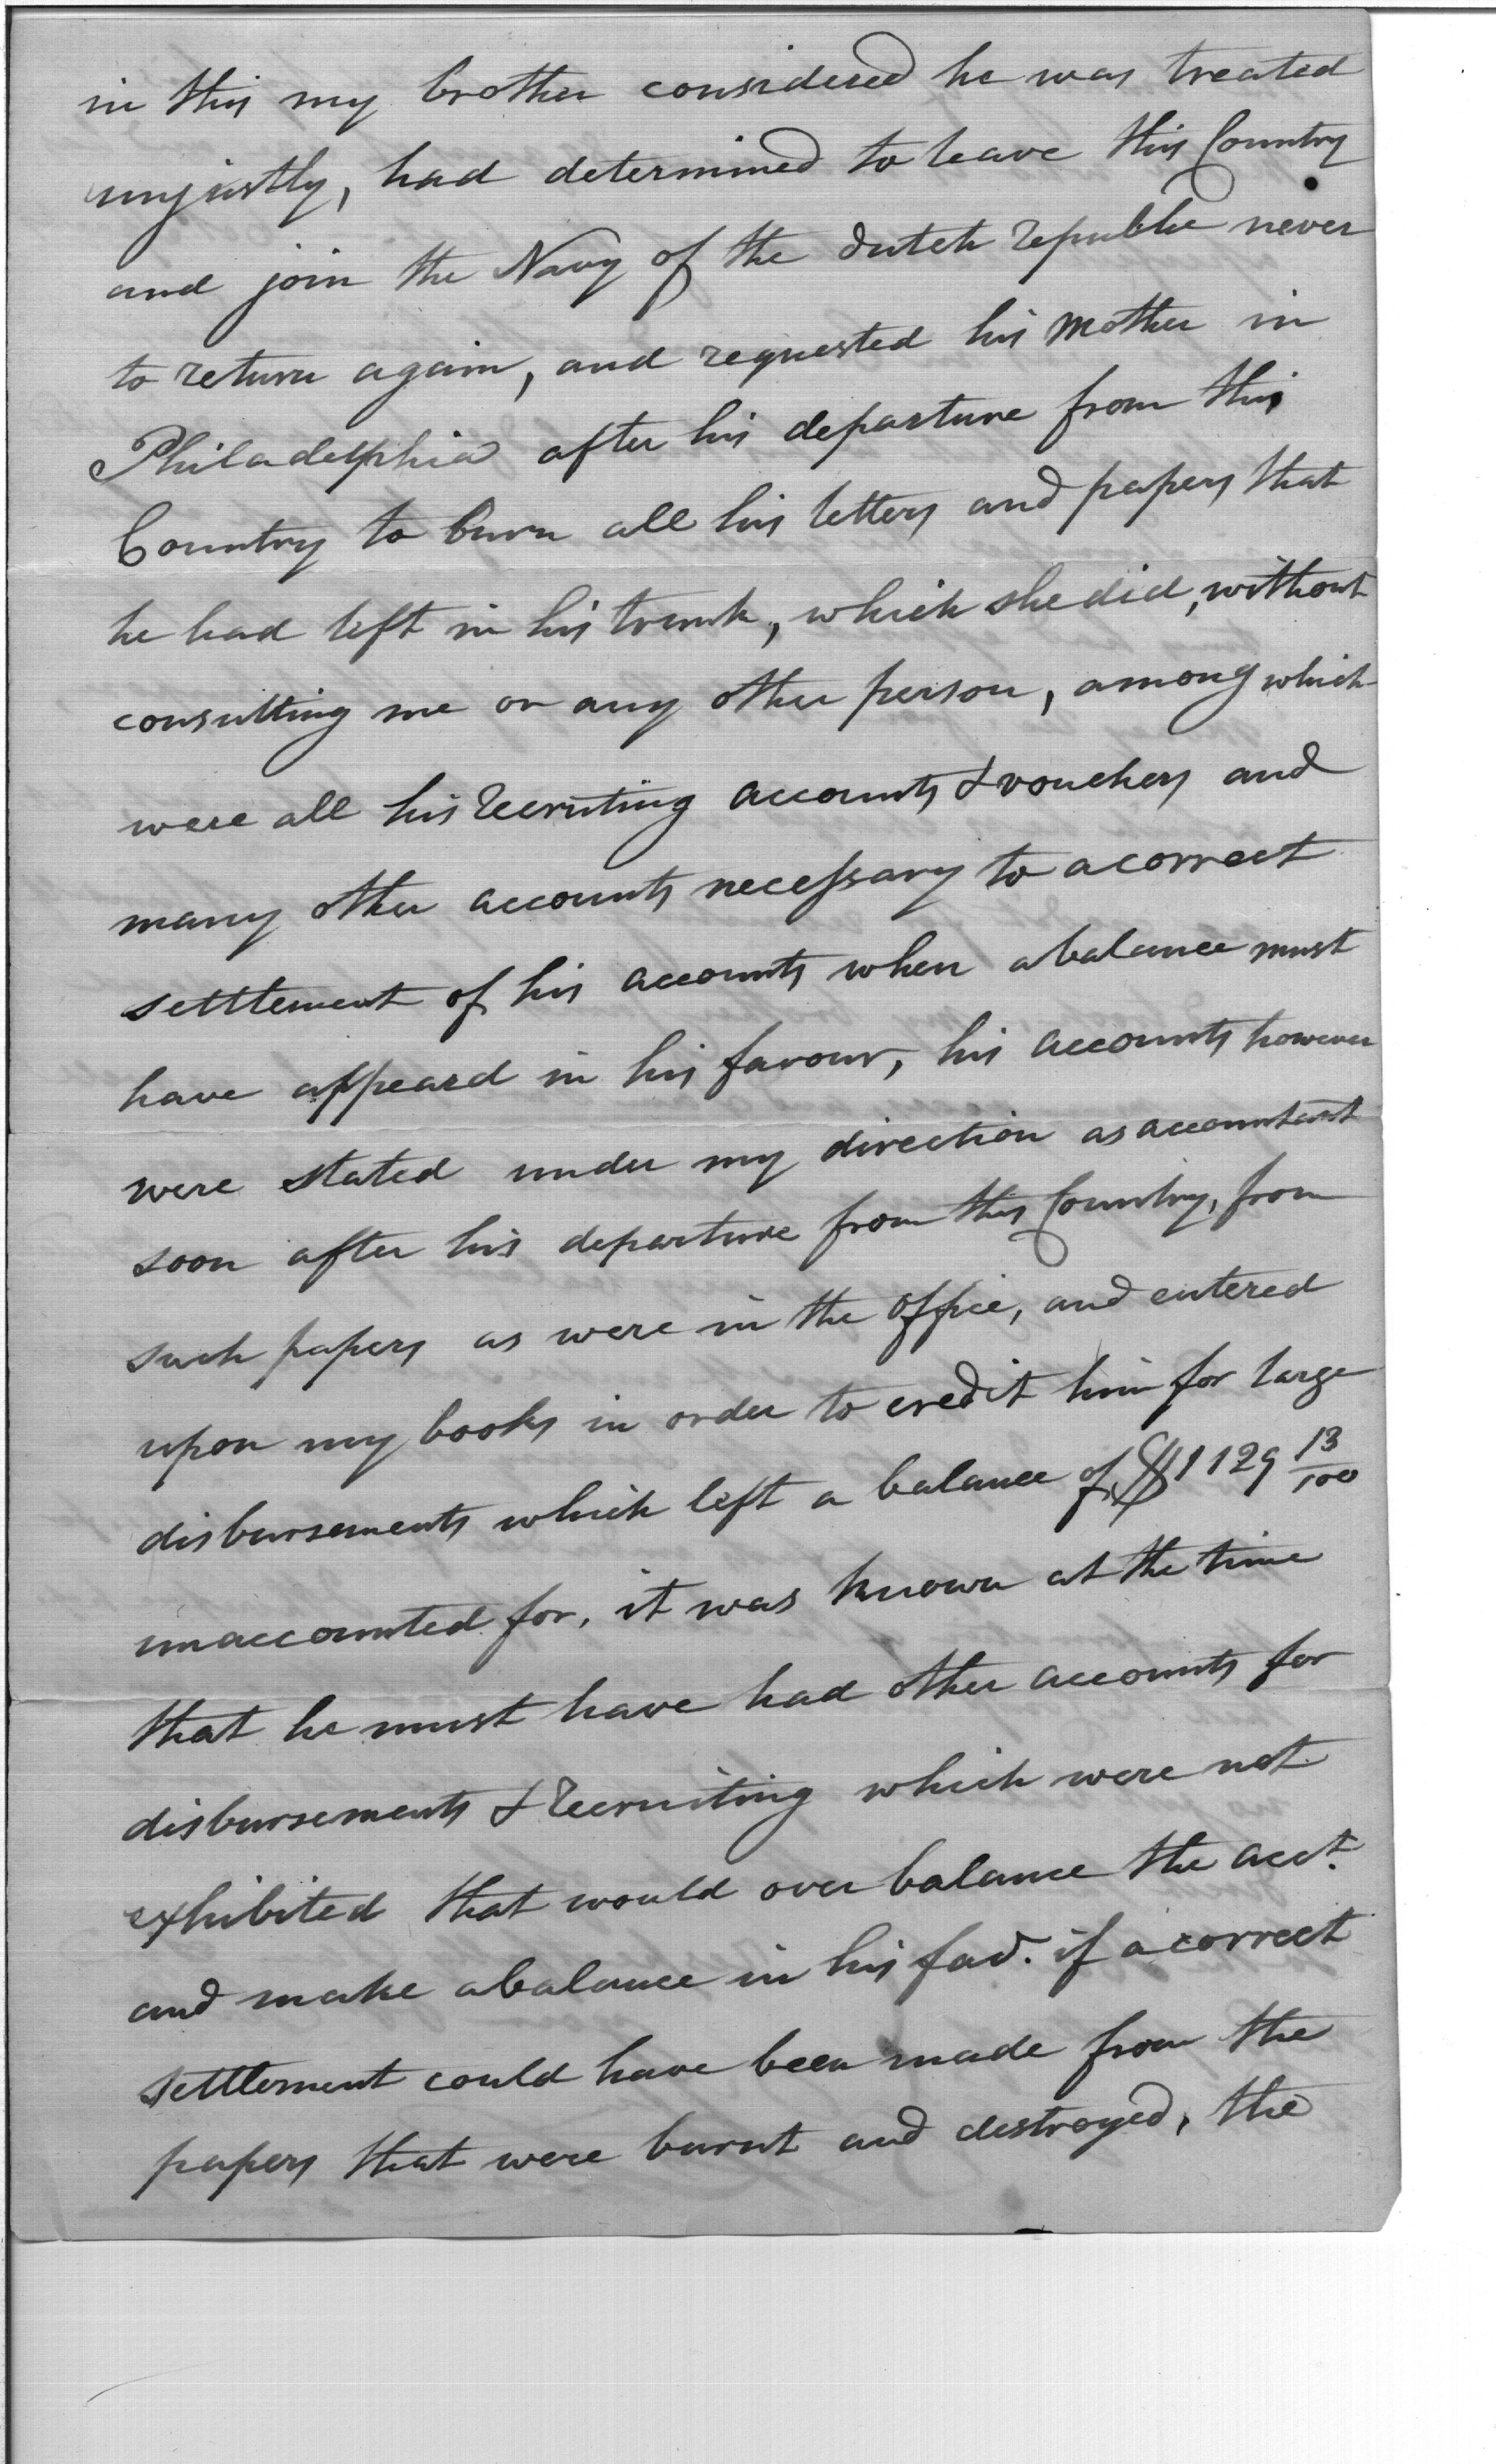 in this my brother considered he was treated
unjustly, had determined to leave this Country
and join the Navy of the dutch republic never
to return again, and requested his Mother in
Philadelphia after his departure from this
Country to burn all his letters and papers that
he had left in his trunk, which she did, without
consulting me or any other person, among which
were all his recruting accounts & vouchers and
many other accounts necessary to a correct
settlement of his accounts when a balance must
have appeard in his favour, his accounts however
were stated under my direction as accountant
soon after his departure from this Country, from
such papers as were in the office, and entered
upon my books in order to credit him for large
disbursements which left a balance of $1129 13/100
unaccounted for, it was known at the time
that he must have had other accounts for
disbursements & recruiting which were not
exhibited that would over balance the acct.
and make a balance in his fav. if a correct
settlement could have been made from the
papers that were burnt and destroyed, the